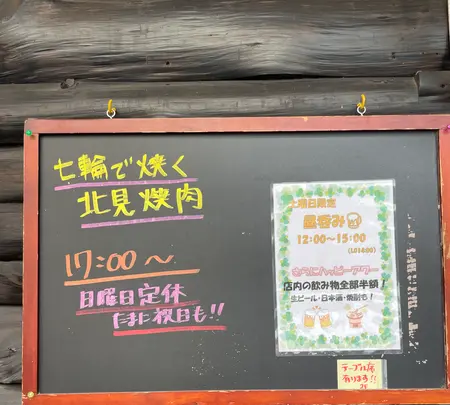 七輪で焼く
北見焼肉
17:00〜
日曜日定休
たまに祝日も!!
土曜日限定
昼呑み
12:00〜15:00
さらにハッピーアワー
店内の飲み物全部半額!
生ビール・日本酒・焼酎も!
テーブル席
有ります!!